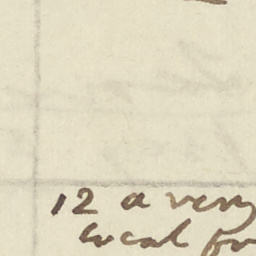 12 a very
local fr